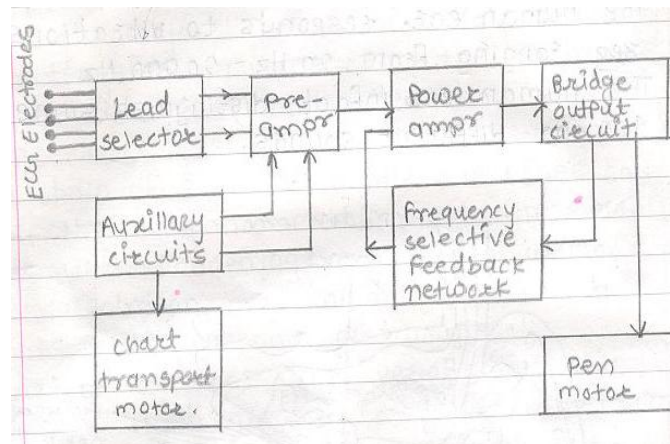 ECG Electrodes
Lead
selector
Pre-
ampr
Power
ampr
Bridge
output
circuit.
Auxillary
circuits
Frequency
selective
feedback
network
chart
transport
motor.
pen
motor